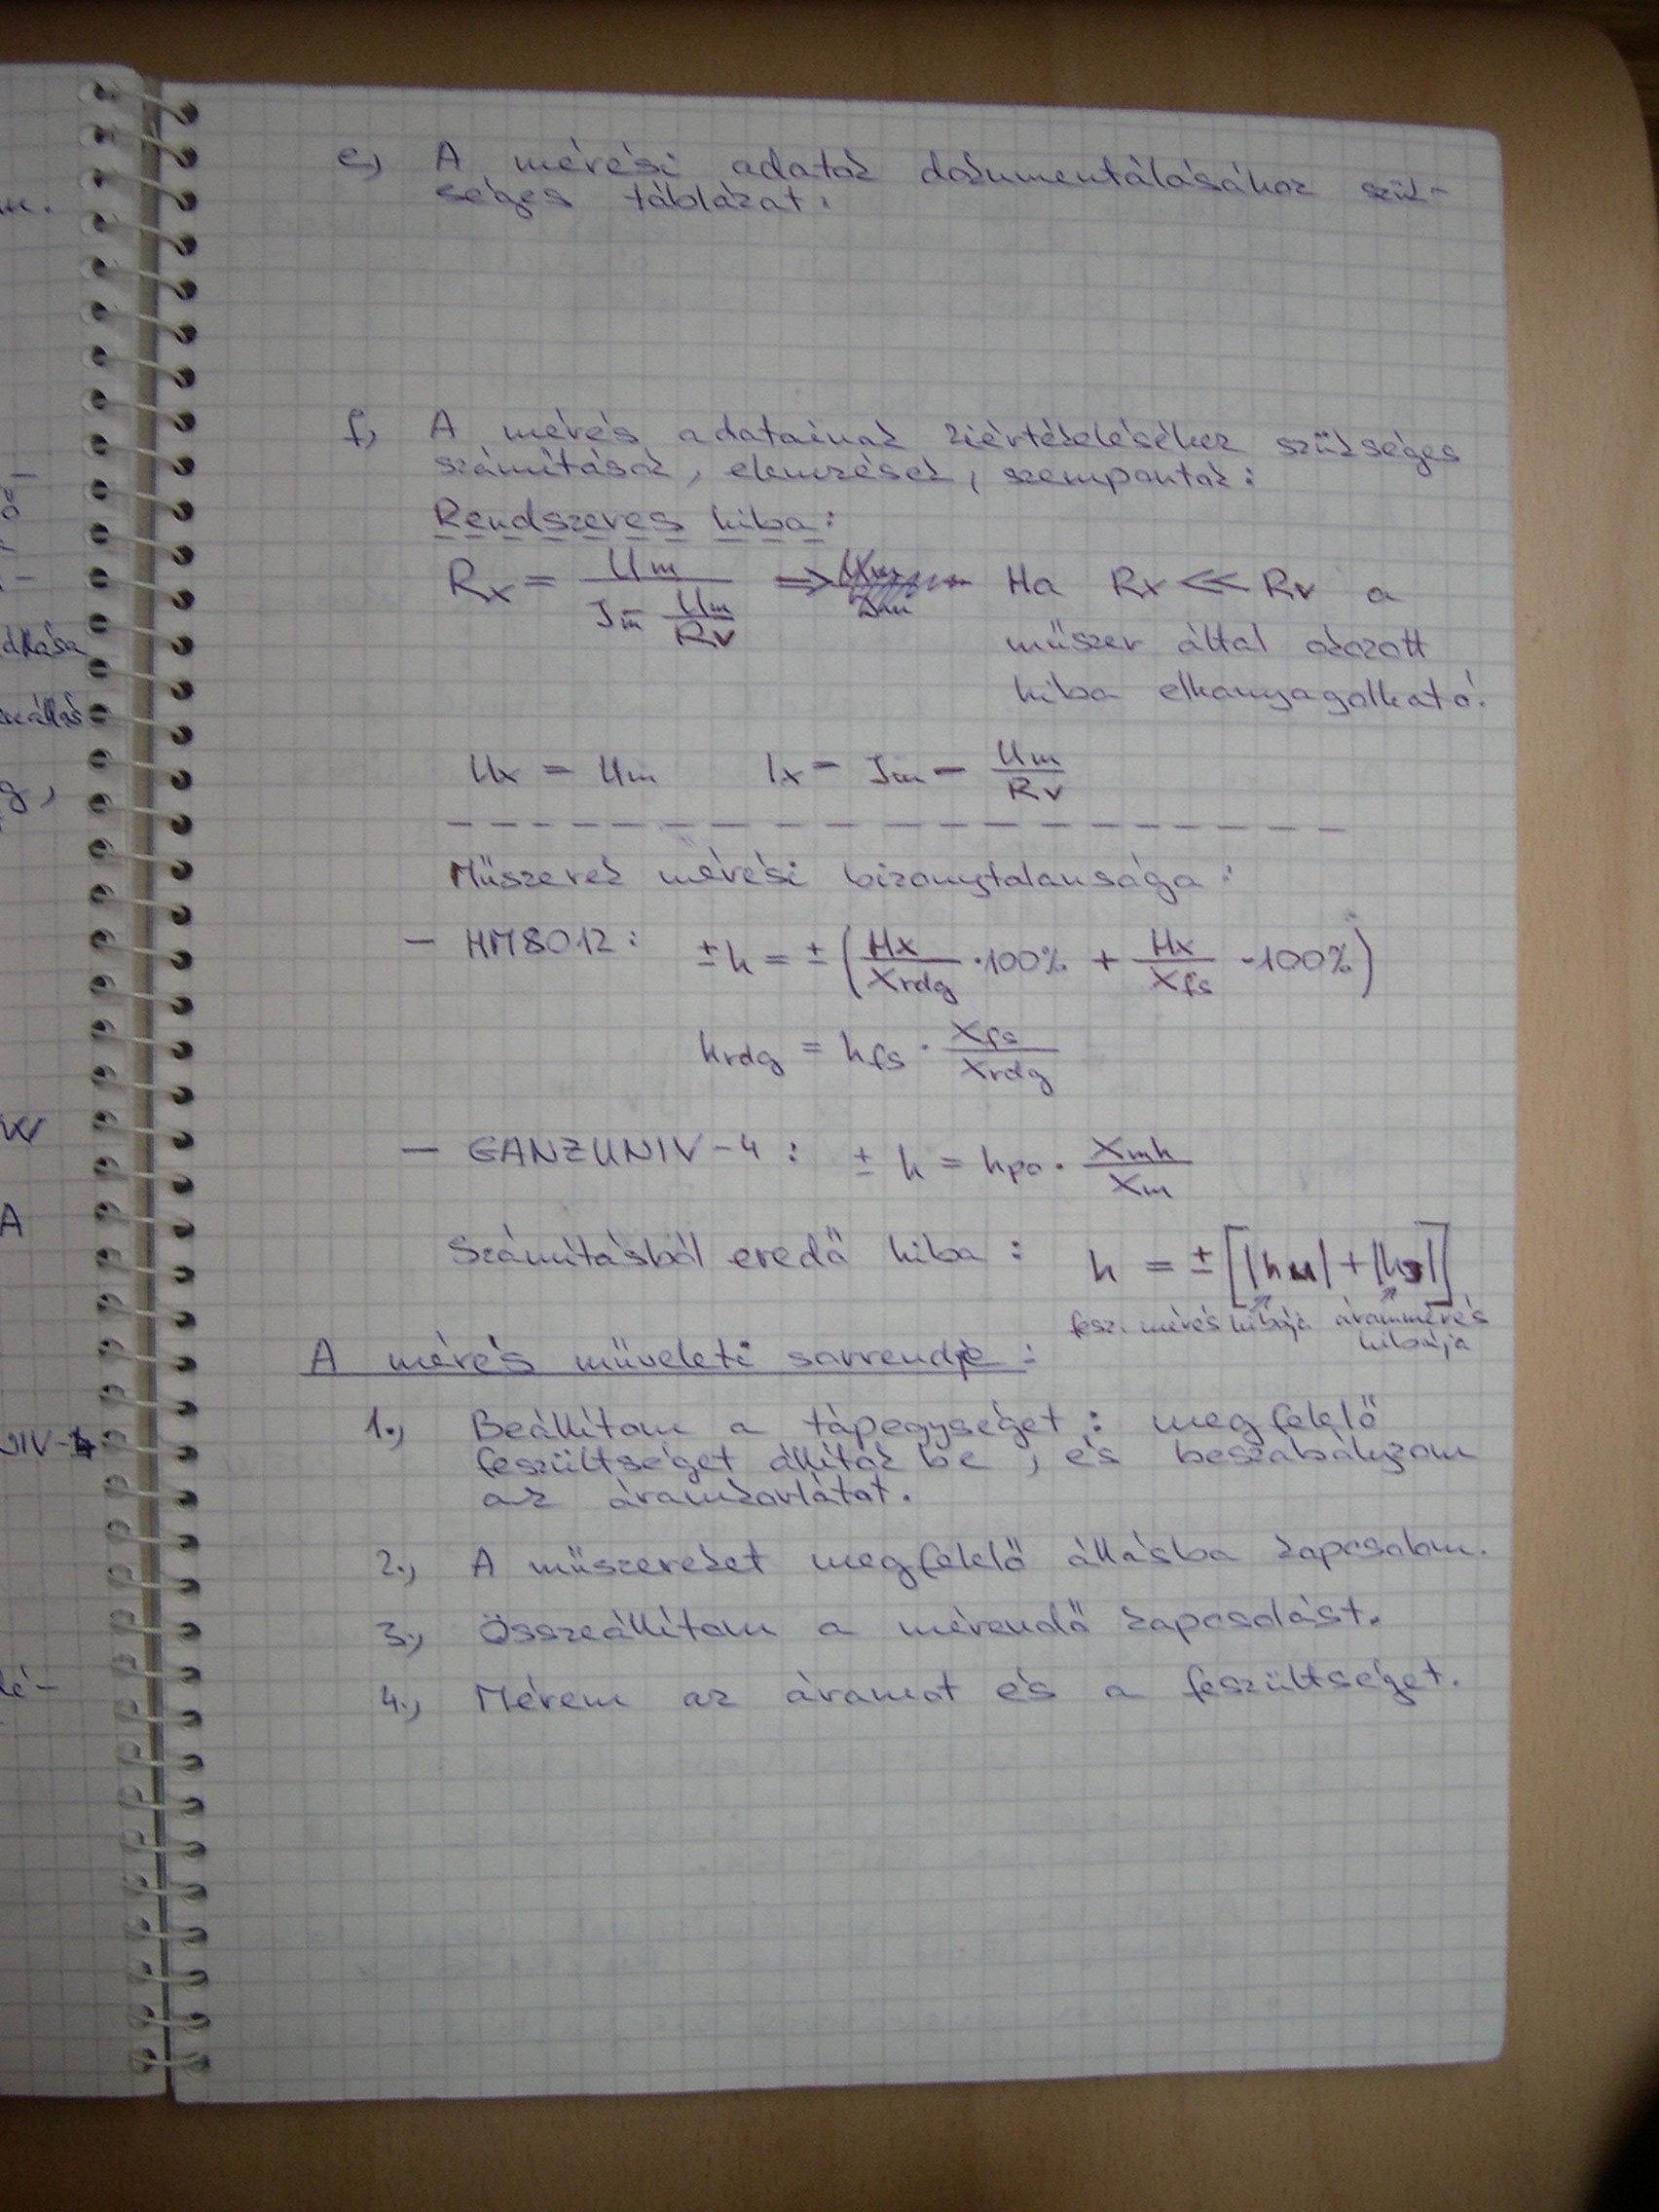 e,) A mérési adatok dokumentálásához szük-
séges táblázat:
f,) A mérés adatainak kiértékeléséhez szükséges
számítások, elemzések, szempontok:
Rendszeres hiba:
Rx = Um / (Im - Um/Rv) ⇒ Ha Rx << Rv a
műszer által okozott
hiba elhanyagolható!
Ux = Um Ix = Im - Um/Rv
Műszerek mérési bizonytalansága:
- HM8012: ±h = ±(Hx/Xrdg ·100% + Hx/Xfs ·100%)
hrdg = hfs · Xfs/Xrdg
- GANZUNIV-4: ± h = hpo · Xmh/Xm
Számításból eredő hiba: h = ±[|hU| + |hI|]
fesz. mérés hibája árammérés
hibája
A mérés műveleti sorrendje:
1.) Beállítom a tápegységet: megfelelő
feszültséget állítok be, és beszabályzom
az áramkorlátot.
2.) A műszereket megfelelő állásba kapcsolom.
3.) Összeállítom a mérendő kapcsolást.
4.) Mérem az áramot és a feszültséget.